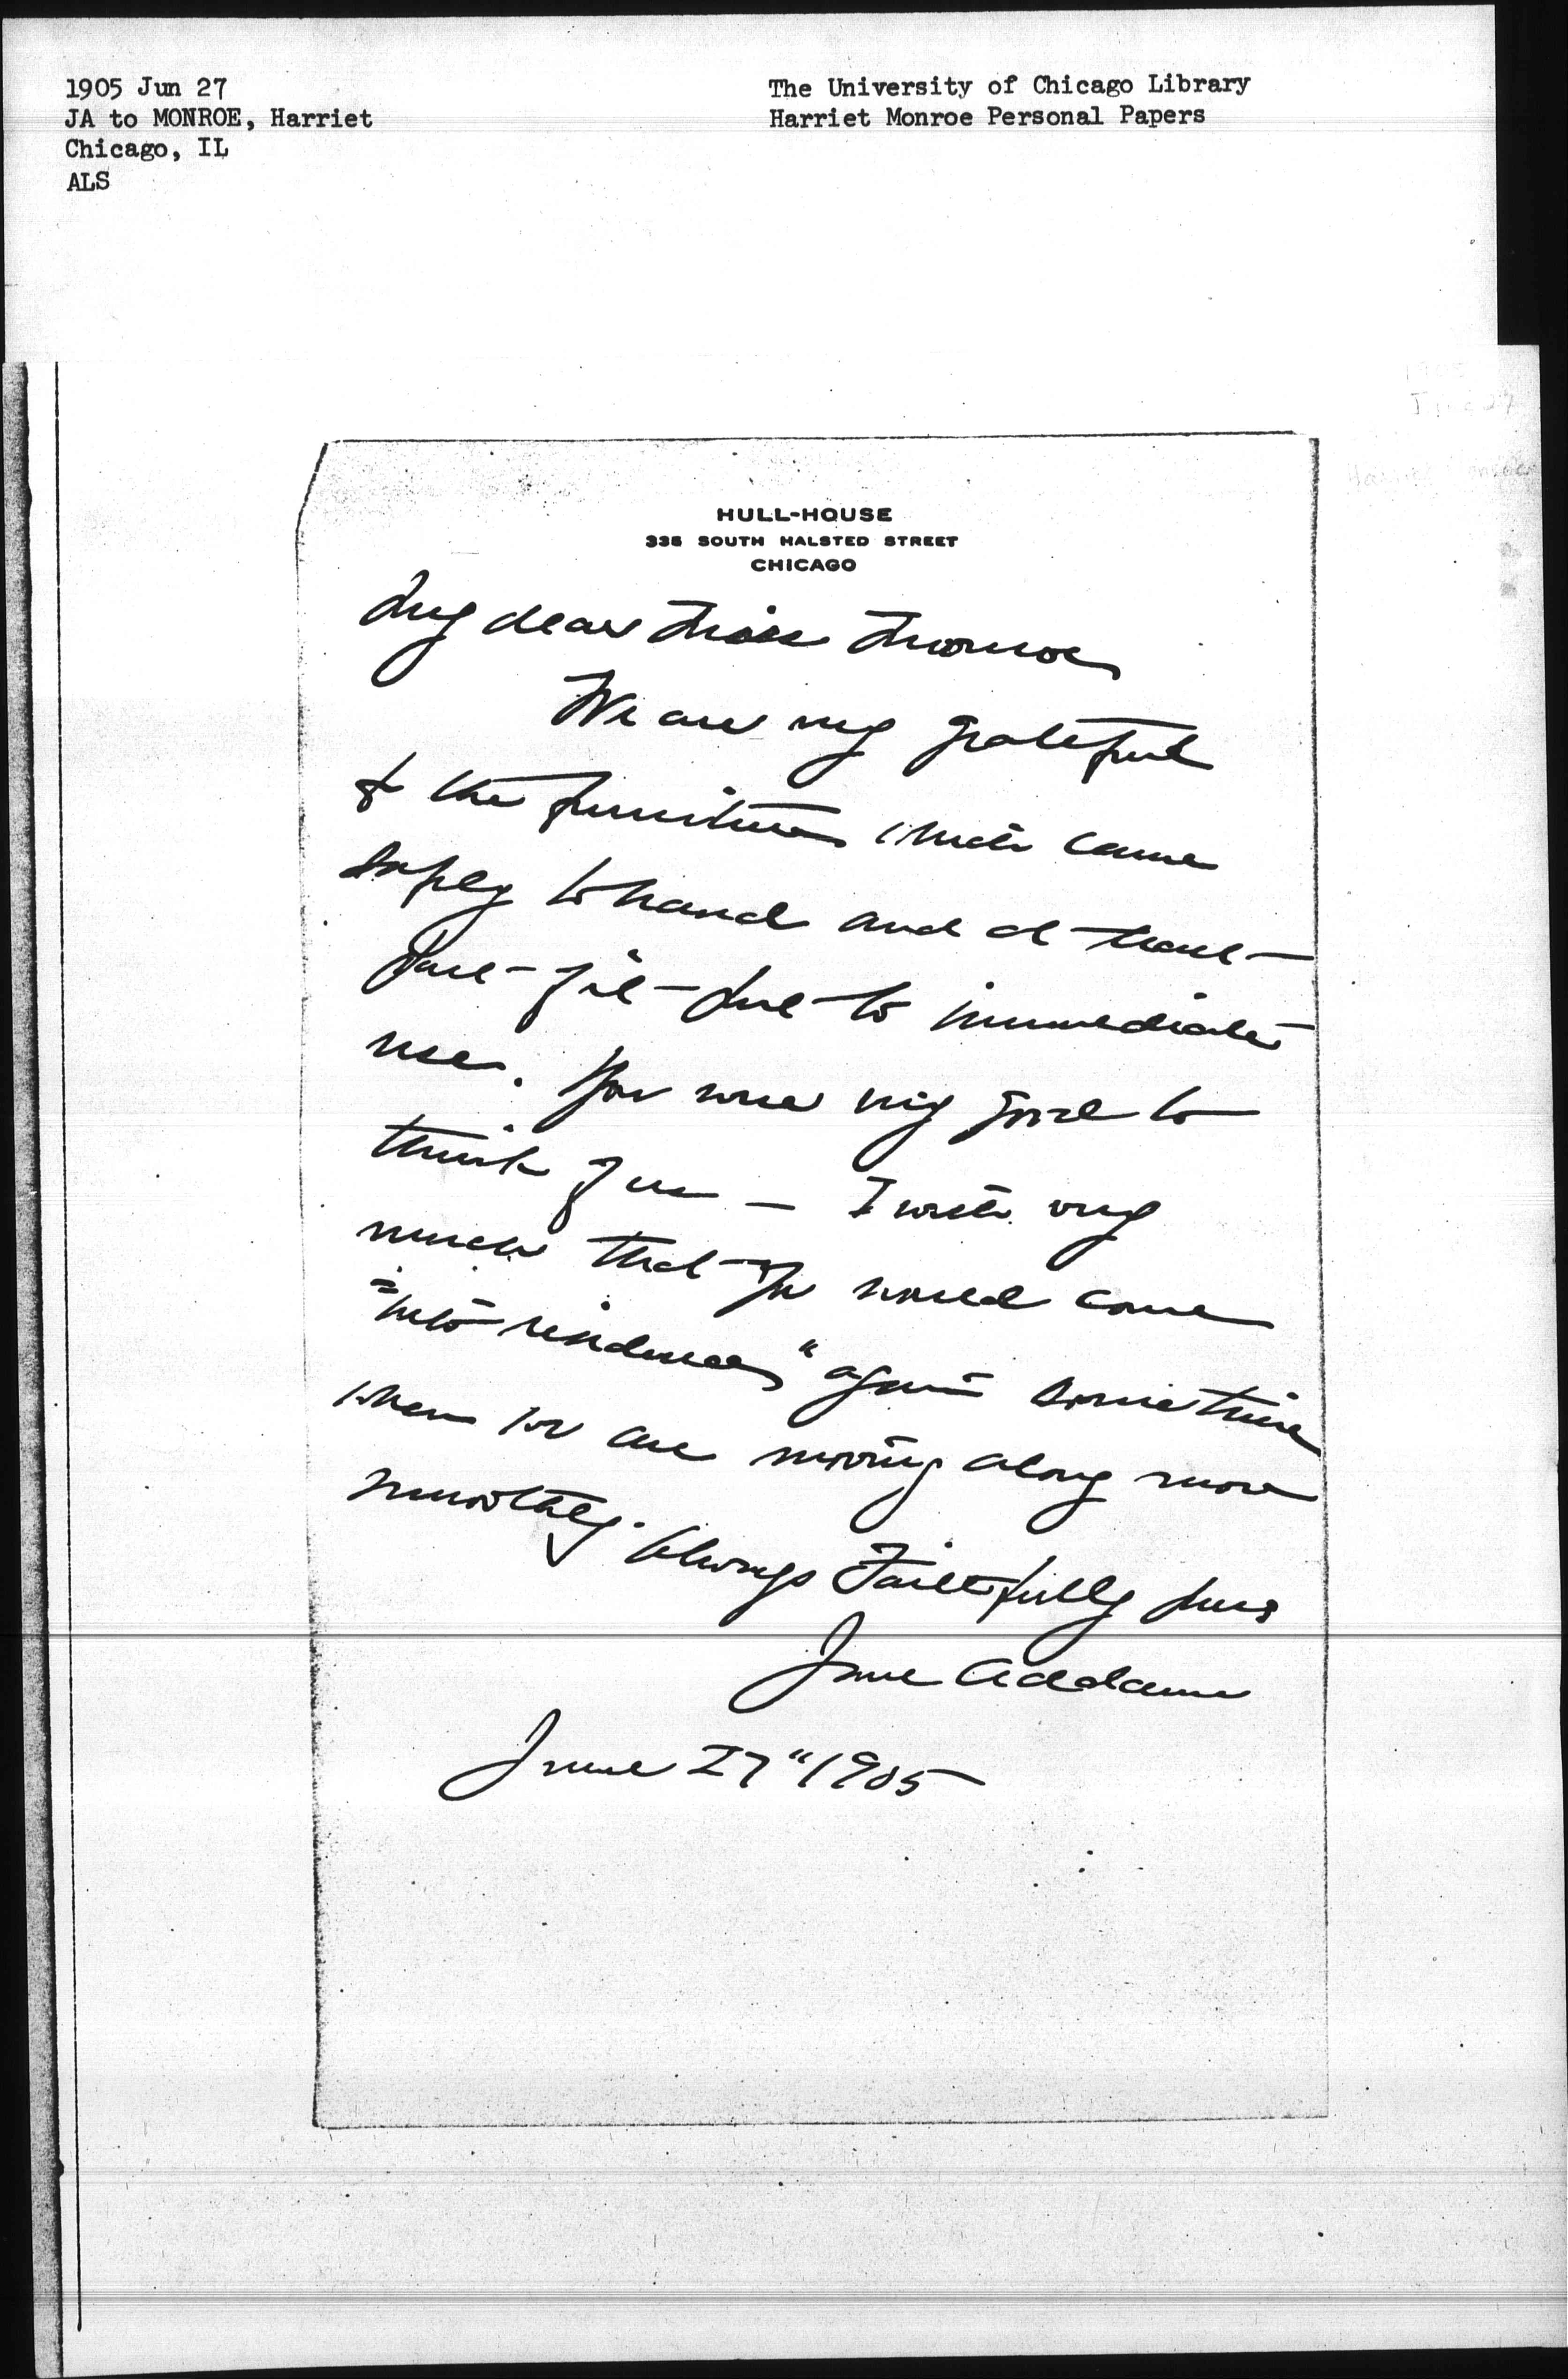 1905 Jun 27
JA to MONROE, Harriet
Chicago, IL
ALS
The University of Chicago Library
Harriet Monroe Personal Papers
HULL-HOUSE
335 SOUTH HALSTED STREET
CHICAGO
My dear Miss Monroe
We are very grateful
for the furniture which came
safely to hand and at least
part of it put to immediate
use. You were very good to
think of us — I wish very
much that you would come
"into residence" again sometime
when we are moving along more
smoothly. Always Faithfully yours
Jane Addams
June 27" 1905